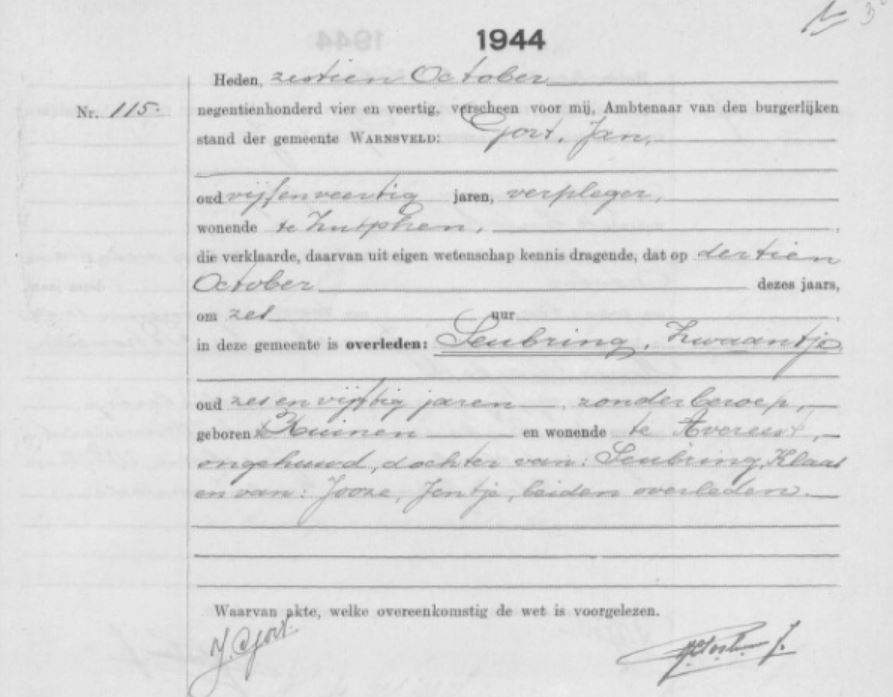 1944
Heden, zestien October
Nr. 115. negentienhonderd vier en veertig, verscheen voor mij, Ambtenaar van den burgerlijken
stand der gemeente WARNSVELD: Gort, Jan,
oud vijfenveertig jaren, verpleger,
wonende te Zutphen,
die verklaarde, daarvan uit eigen wetenschap kennis dragende, dat op dertien
October dezes jaars,
om zes uur
in deze gemeente is overleden: Seubring, Zwaantje
oud zesenvijftig jaren, zonder beroep,
geboren te Ruinen en wonende te Avereest,
ongehuwd, dochter van: Seubring, Klaas
en van: Jooze, Jentje, beiden overleden.
Waarvan akte, welke overeenkomstig de wet is voorgelezen.
J. Gort.